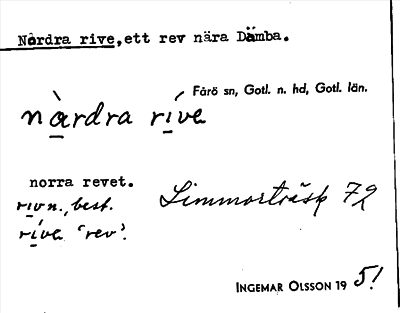 Nȧrdra rive, ett rev nära Dämba.
Fårö sn, Gotl. n. hd, Gotl. län.
nàrdra ríve
norra revet.
riv n., best.
ríve 'rev'.
Limmorträsk 72
INGEMAR OLSSON 19 51